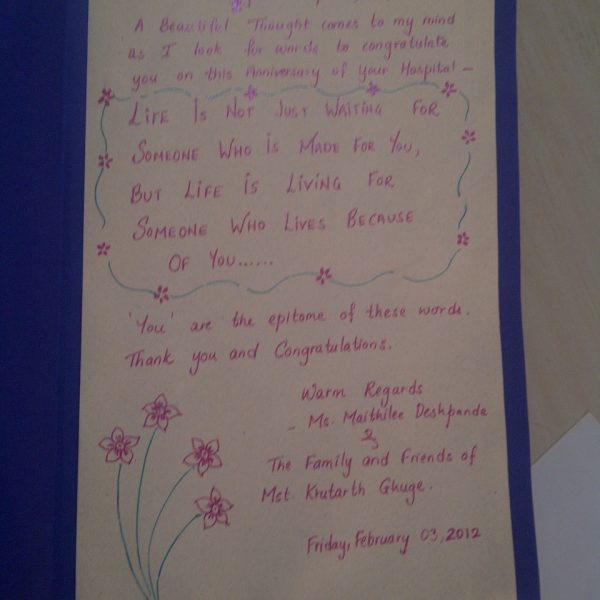 A Beautiful Thought comes to my mind
as I look for words to congratulate
you on this Anniversary of your Hospital –
LIFE IS NOT JUST WAITING FOR
SOMEONE WHO IS MADE FOR YOU,
BUT LIFE IS LIVING FOR
SOMEONE WHO LIVES BECAUSE
OF YOU......
'You' are the epitome of these words.
Thank you and Congratulations.
Warm Regards
- Ms. Maithilee Deshpande
&
The Family and Friends of
Mst. Krutarth Ghuge.
Friday, February 03, 2012